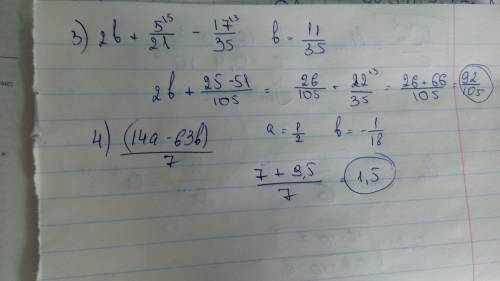 3) 2b + 5^15/21 - 17^3/35 b = 11/35
2b + 25-51/105 = 26/105 + 22^3/35 = 26+66/105 = 92/105
4) (14a - 63b)/7 a = 1/2 b = -1/18
7 + 3,5/7 = 1,5